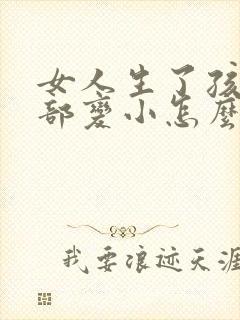 女人生了孩
部變小怎麼
我要浪迹天涯